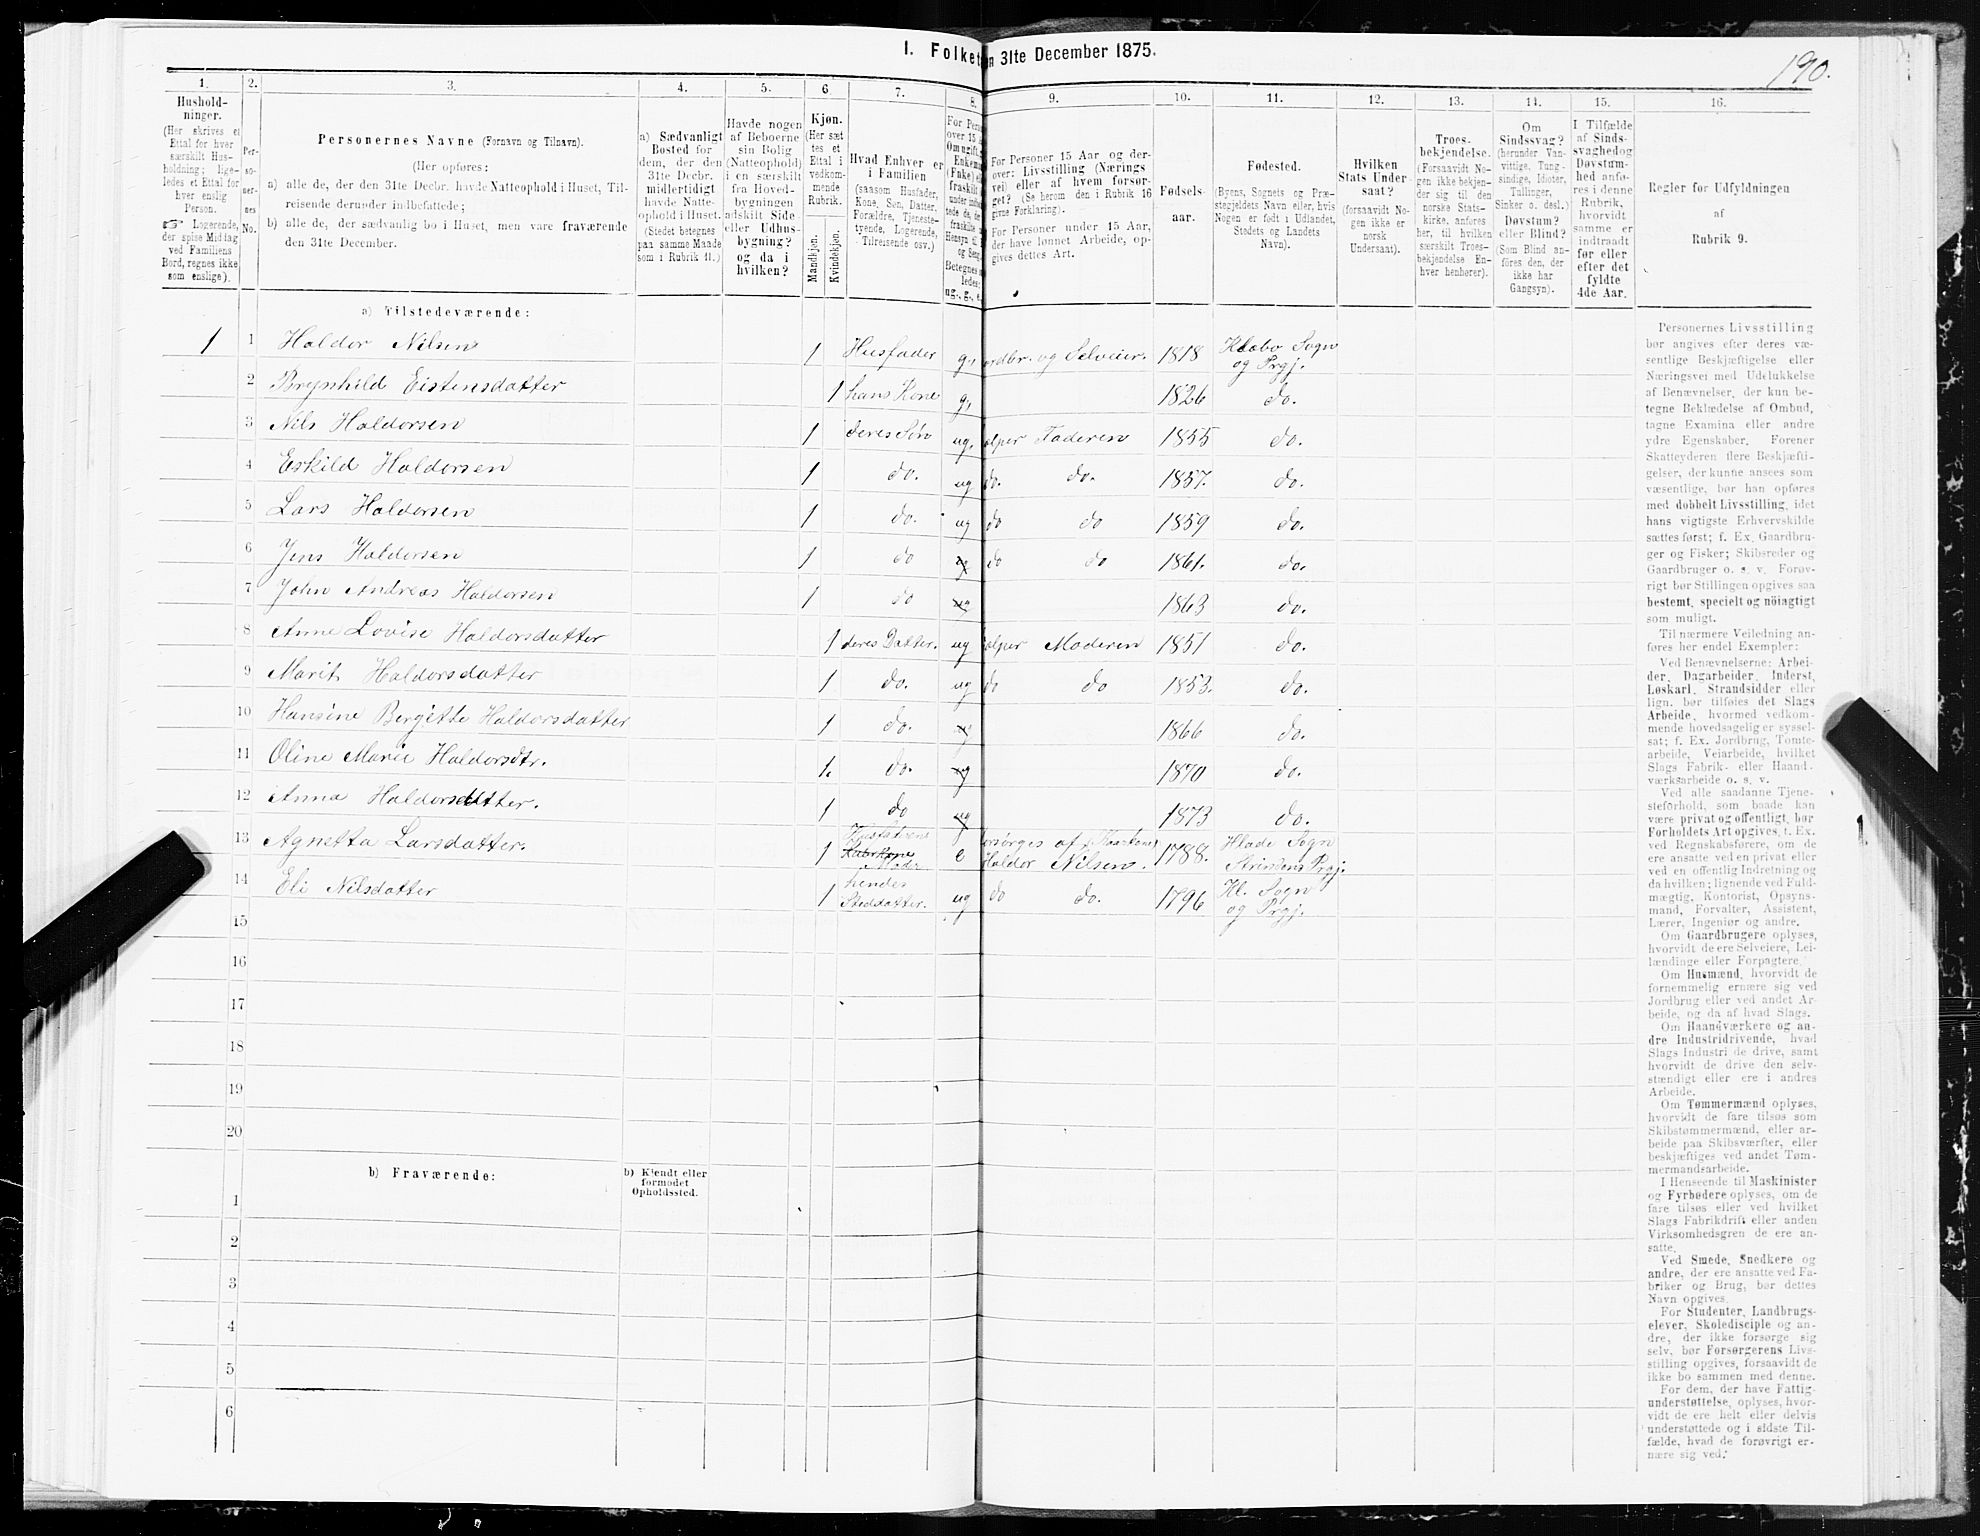 I. Folket
n 31te December 1875.
190.
1.
Hushold-
ninger.
(Her skrives et
Ettal for hver
særskilt Hus-
holdning; lige-
ledes et Ettal for
hver enslig
Person.
Logerende,
der spise Middag
ved Familiens
Bord, regnes ikke
som enslige).
2.
Per-
so-
ner-
nes
No.
3.
Personernes Navne (Fornavn og Tilnavn).
(Her opføres:
a) alle de, der den 31te Decbr. havde Natteophold i Huset, Til-
reisende derunder indbefattede;
b) alle de, der sædvanlig bo i Huset, men vare fraværende
den 31te December.
4.
a) Sædvanligt
Bosted for
dem, der den
31te Decbr.
midlertidigt
havde Natte-
ophold i Huset.
(Stedet betegnes
paa samme Maade
som i Rubrik 11.)
5.
Havde nogen
af Beboerne
sin Bolig
(Natteophold)
i en særskilt
fra Hoved-
bygningen
adskilt Side
eller Udhus-
bygning?
og da i
hvilken?
6
Kjøn.
(Her sæt
tes et
Ettal i
vedkom-
mende
Rubrik.
Mandkjøn.
Kvindekjøn.
7.
Hvad Enhver er
i Familien
(saasom Husfader,
Kone, Søn, Datter,
Forældre, Tjeneste-
tyende, Logerende,
Tilreisende osv.)
8.
For Pers
over 15 A
Om ugift, g
Enkema
(Enke) elle
fraskilt
9.
For Personer 15 Aar og der-
over: Livsstilling (Nærings
vei) eller af hvem forsør-
get? (Se herom den i Rubrik 16
givne Forklaring).
For Personer under 15 Aar,
der have lønnet Arbeide, op-
gives dettes Art.
10.
Fødsels-
aar.
11.
Fødested.
(Byens, Sognets og Præ-
stegjeldets Navn eller, hvis
Nogen er født i Udlandet,
Stedets og Landets
Navn).
12.
Hvilken
Stats Under-
saat?
(forsaavidt No-
gen ikke er
norsk
Undersaat).
13.
Troes-
bekjendelse.
(Forsaavidt No-
gen ikke bekjen-
der sig til den
norske Stats-
kirke, anføres
her, til hvilken
særskilt Troes-
bekjendelse En-
hver henhører).
14.
Om
Sindssvag?
(herunder Van-
vittige, Tung-
sindige, Idioter,
Tullinger,
Sinker o. desl.)
Døvstum?
eller Blind?
(Som Blind an-
føres den, der
ikke har
Gangsyn).
15.
I Tilfælde
af Sinds-
svaghed og
Døvstum-
hed anfø-
res i denne
Rubrik,
hvorvidt
samme er
indtraadt
før eller
efter det
fyldte
4de Aar.
16.
Regler før Udfyldningen
af
Rubrik 9.
a) Tilstedeværende:
1 1 Haldor Nilsen 1 Husfader g, ordbr. og Selveier. 1818 Klæbo Sogn
og Prgj.
2 Brynhild Eistensdatter 1 hans Kone g, 1826 do.
3 Nils Haldorsen 1 deres Søn ug. ælper Faderen 1855 do.
4 Eskild Haldorsen 1 do. ug do. do. 1857. do.
5 Lars Haldorsen 1 do. ug do do 1859 do.
6 Jens Haldorsen 1 do ug do do 1861. do.
7 John Andreas Haldorsen 1 do ug 1863 do.
8 Anne Lovise Haldorsdatter 1 deres Datter. ug ælper Moderen 1851 do.
9 Marit Haldorsdatter 1 do. ug do do 1853. do.
10 Hansine Bergitte Haldorsdatter 1 do. ug 1866 do.
11 Oline Marie Haldorsdtr. 1. do. ug 1870 do.
12 Anna Haldorsdatter. 1 do ug 1873 do.
13 Agnetta Larsdatter. 1 Husfaderens
Moder e orsørges af
Haldor Nilsen. 1788. Hlade Sogn
Strindens Prgj.
14 Eli Nilsdatter 1 hendes
Steddatter. ug do do. 1796 Kl. Sogn
og Prgj.
15
16
17
18
19
20
b) Fraværende:
b) Kjendt eller
formodet
Opholdssted.
1
2
3
4
5
6
Personernes Livsstilling
bør angives efter deres væ-
sentlige Beskjæftigelse eller
Næringsvei med Udelukkelse
af Benævnelser, der kun be-
tegne Beklædelse af Ombud,
tagne Examina eller andre
ydre Egenskaber. Forener
Skatteyderen flere Beskjæfti-
gelser, der kunne ansees som
væsentlige, bør han opføres
med dobbelt Livsstilling, idet
hans vigtigste Erhvervskilde
sættes først; f. Ex. Gaardbru-
ger og Fisker; Skibsreder og
Gaardbruger o. s. v. Forøv-
rigt bør Stillingen opgives saa
bestemt, specielt og nøiagtigt
som muligt.
Til nærmere Veiledning an-
føres her endel Exempler:
Ved Benævnelserne: Arbei-
der, Dagarbeider, Inderst,
Løskarl, Strandsidder eller
lign. bør tilføies det Slags
Arbeide, hvormed vedkom-
mende hovedsagelig er syssel-
sat; f. Ex. Jordbrug, Tomte-
arbeide, Veiarbeide, hvilket
Slags Fabrik- eller Haand-
værksarbeide o. s. v.
Ved alle saadanne Tjene-
steforhold, som baade kan
være privat og offentligt, bør
Forholdets Art opgives, t. Ex.
ved Regnskabsførere, om de
ere ansatte ved en privat eller
ved en offentlig Indretning og
da hvilken; lignende ved Fuld-
mægtig, Kontorist, Opsyns-
mand, Forvalter, Assistent,
Lærer, Ingeniør og andre.
Om Gaardbrugere oplyses,
hvorvidt de ere Selveiere, Lei-
lændinge eller Forpagtere.
Om Husmænd, hvorvidt de
fornemmelig ernære sig ved
Jordbrug eller ved andet Ar-
beide, og da af hvad Slags.
Om Haandværkere og an-
dre Industridrivende, hvad
Slags Industri de drive, samt
hvorvidt de drive den selv-
stændigt eller ere i andres
Arbeide.
Om Tømmermænd oplyses,
hvorvidt de fare tilsøs som
Skibstømmermænd, eller ar-
beide paa Skibsværfter, eller
beskjæftiges ved andet Tøm-
mermandsarbeide.
I Henseende til Maskinister
og Fyrbødere oplyses, om de
fare tilsøs eller ved hvilket
Slags Fabrikdrift eller anden
Virksomhedsgren de ere an-
satte.
Ved Smede, Snedkere og
andre, der ere ansatte ved Fa-
briker og Brug, bør dettes
Navn opgives.
For Studenter, Landbrugs-
elever, Skoledisciple og an-
dre, der ikke forsørge sig
selv, bør Forsørgerens Livs-
stilling opgives, forsaavidt de
ikke bo sammen med denne.
For dem, der have Fattig-
understøttelse, oplyses, hvor-
vidt de ere helt eller delvis
understøttede og i sidste Til-
fælde, hvad de forøvrigt er-
nære sig ved.